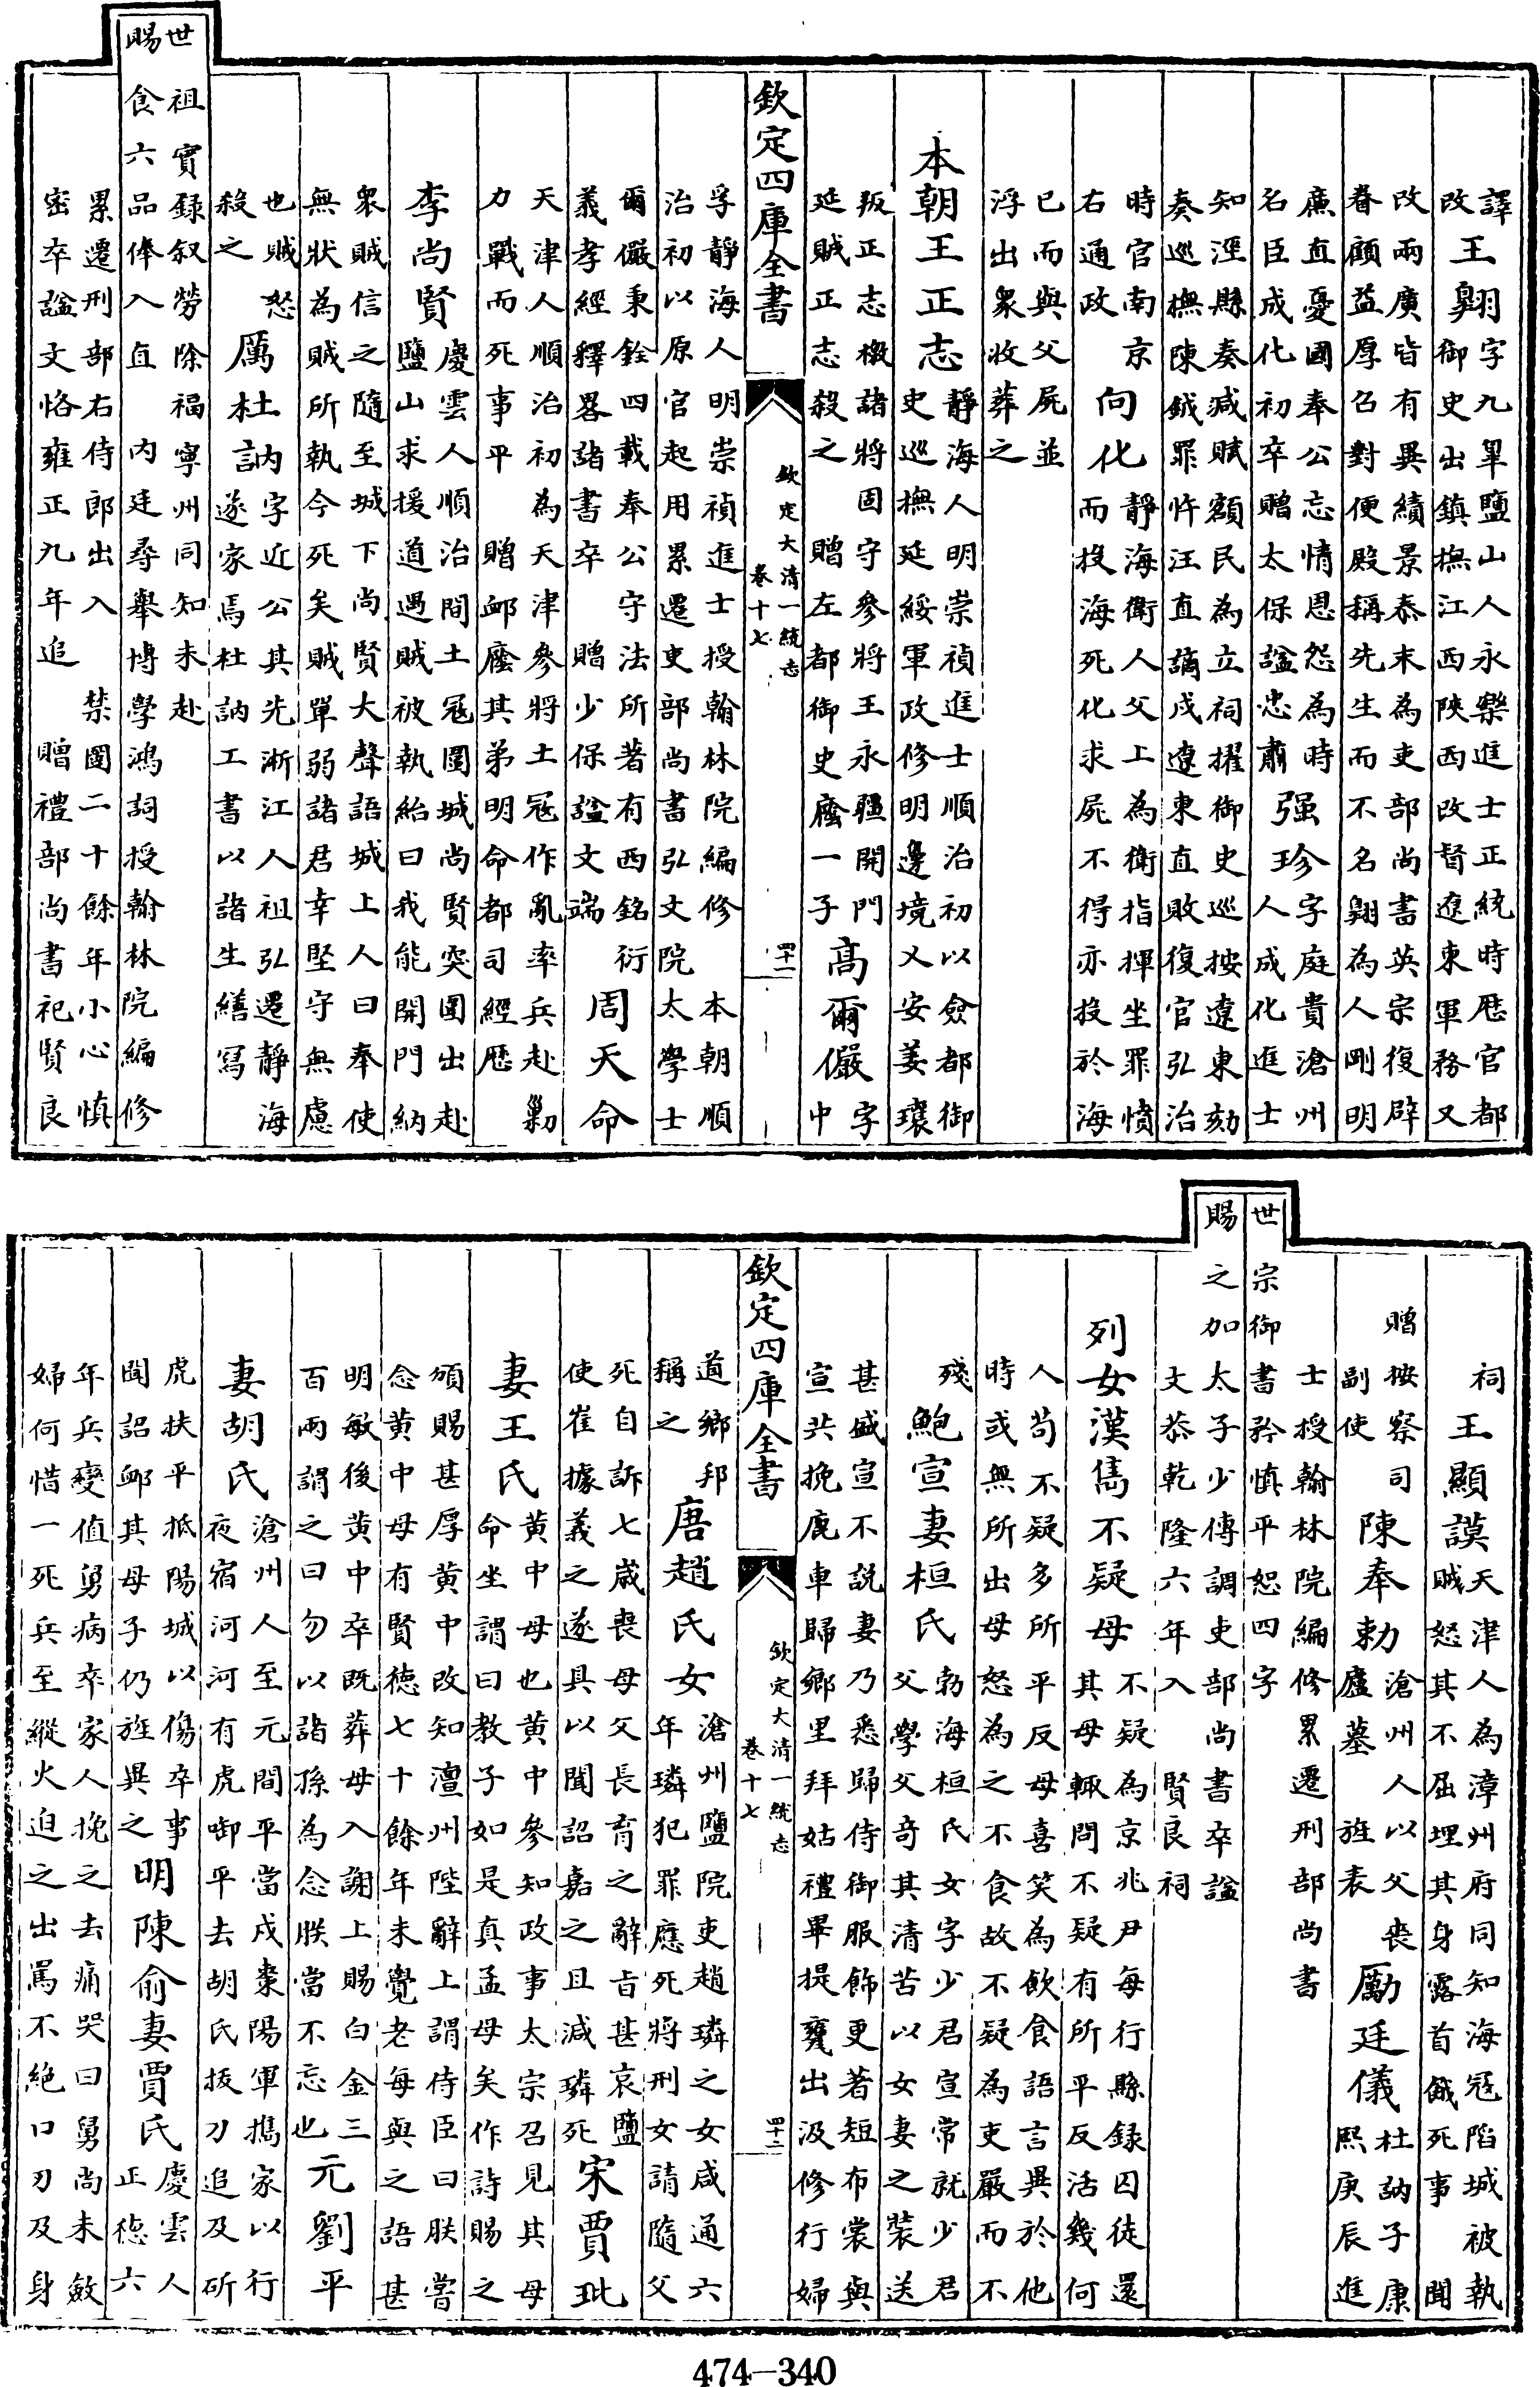 譯
改王翺字九臯鹽山人永樂進士正統時歴官都
御史出鎮撫江西陝西改督遼東軍務又
改兩廣皆有異績景泰末為吏部尚書英宗復辟
眷顧益厚召對便殿稱先生而不名翺為人剛明
廉直憂國奉公忘情恩怨為時
名臣成化初卒贈太保諡忠肅强珍字庭貴滄州
人成化進士
知涇縣奏減賦額民為立祠擢御史巡按遼東劾
奏巡撫陳鉞罪忤汪直謫戍遼東直敗復官弘治
時官南京
右通政向化靜海衛人父上為衛指揮坐罪憤
而投海死化求屍不得亦投於海
已而與父屍並
浮出衆收葬之
本朝王正志靜海人明崇禎進士順治初以僉都御
史巡撫延綏軍政修明邊境乂安姜瓖
叛正志檄諸將固守參將王永疆開門
延賊正志殺之贈左都御史廕一子高爾儼字
中
欽定四庫全書
欽定大清一統志
卷十七
四十一
孚靜海人明崇禎進士授翰林院編修本朝順
治初以原官起用累遷吏部尚書弘文院太學士
爾儼秉銓四載奉公守法所著有西銘衍
義孝經釋畧諸書卒贈少保諡文端周天命
天津人順治初為天津參將土冦作亂率兵赴剿
力戰而死事平贈䘏廕其弟明命都司經歴
李尚賢慶雲人順治間土冦圍城尚賢突圍出赴
鹽山求援道遇賊被執紿曰我能開門納
衆賊信之隨至城下尚賢大聲語城上人曰奉使
無狀為賊所執今死矣賊單弱諸君幸堅守無慮
也賊怒
殺之厲杜訥字近公其先浙江人祖弘遷靜海
遂家焉杜訥工書以諸生繕寫
世祖實録叙勞除福寧州同知未赴
賜食六品俸入直内廷尋舉博學鴻詞授翰林院編修
累遷刑部右侍郎出入禁圍二十餘年小心慎
密卒諡文恪雍正九年追贈禮部尚書祀賢良
祠王顯謨天津人為漳州府同知海冦陷城被執
賊怒其不屈埋其身露首餓死事聞
贈按察司
副使陳奉勅滄州人以父喪
廬墓旌表勵廷儀杜訥子康
熙庚辰進
士授翰林院編修累遷刑部尚書
世宗御書矜慎平恕四字
賜之加太子少傅調吏部尚書卒諡
文恭乾隆六年入賢良祠
列女漢雋不疑母不疑為京兆尹每行縣録囚徒還
其母輒問不疑有所平反活幾何
人茍不疑多所平反母喜笑為飲食語言異於他
時或無所出母怒為之不食故不疑為吏嚴而不
殘鮑宣妻桓氏勃海桓氏女字少君宣常就少君
父學父奇其清苦以女妻之裝送
甚盛宣不説妻乃悉歸侍御服飾更著短布裳與
宣共挽鹿車歸鄉里拜姑禮畢提甕出汲修行婦
欽定四庫全書
欽定大清一統志
卷十七
四十二
道鄉邦
稱之唐趙氏女滄州鹽院吏趙璘之女咸通六
年璘犯罪應死將刑女請隨父
死自訴七歲喪母父長育之辭㫖甚哀鹽
使崔據義之遂具以聞詔嘉之且減璘死宋賈玭
妻王氏黄中母也黄中參知政事太宗召見其母
命坐謂曰教子如是真孟母矣作詩賜之
頒賜甚厚黄中改知澶州陛辭上謂侍臣曰朕嘗
念黄中母有賢德七十餘年未覺老每與之語甚
明敏後黄中卒既葬母入謝上賜白金三
百兩謂之曰勿以諸孫為念朕當不忘也元劉平
妻胡氏滄州人至元間平當戍棗陽軍攜家以行
夜宿河河有虎㗸平去胡氏拔刀追及斫
虎扶平抵陽城以傷卒事
聞詔䘏其母子仍旌異之明陳俞妻賈氏慶雲人
正德六
年兵變值舅病卒家人挽之去痛哭曰舅尚未斂
婦何惜一死兵至縱火迫之出罵不絶口刃及身
474-340